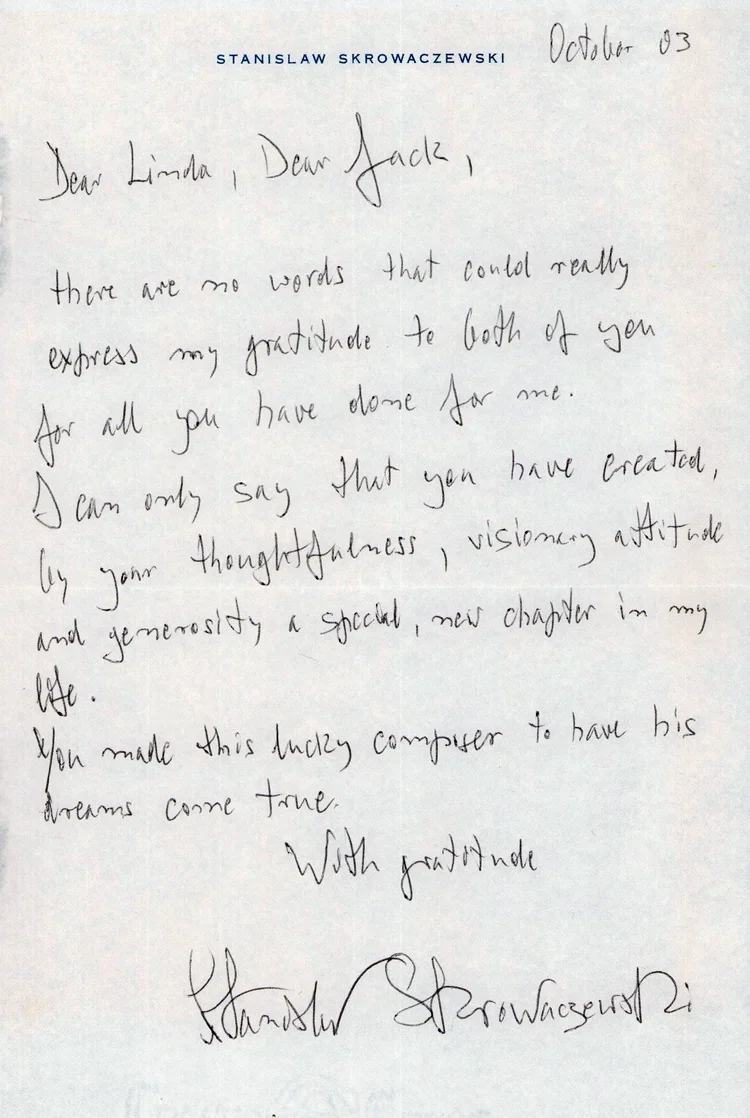 STANISLAW SKROWACZEWSKI
October 03
Dear Linda, Dear Jack,
there are no words that could really
express my gratitude to both of you
for all you have done for me.
I can only say that you have created,
by your thoughtfulness, visionary attitude
and generosity a special, new chapter in my
life.
You made this lucky composer to have his
dreams come true.
With gratitude
Stanislaw Skrowaczewski